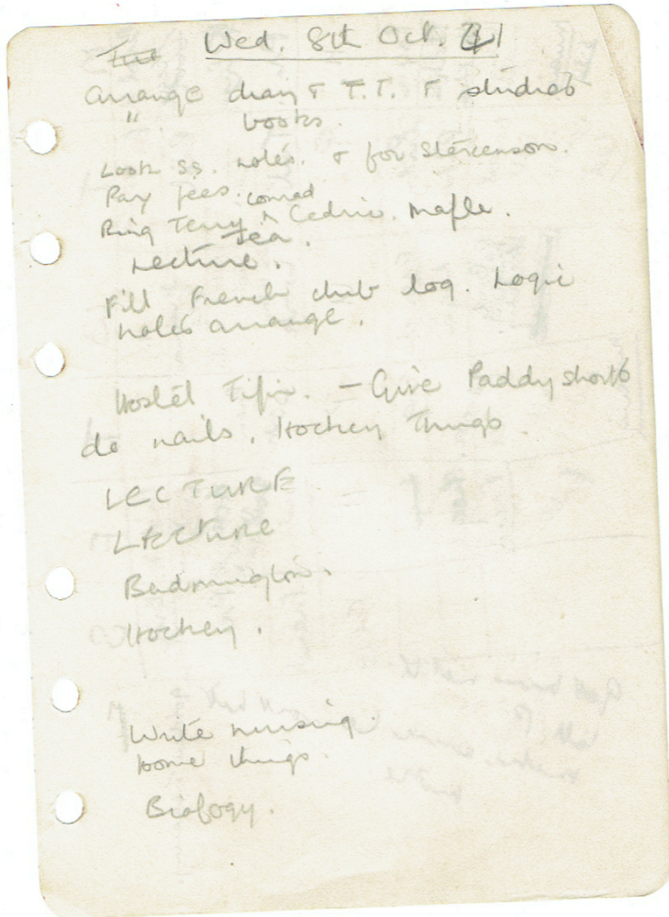 Wed. 8th Oct. 41
Arrange diary & T.T. & studies
" books.
Look ss. notes. & for Stevenson.
Pay fees. Conrad
Ring Terry ^ Cedric. Mafle.
Tea.
Lecture.
Fill French club log. Logic
notes arrange.
Hostel Tifin. — Give Paddy shorts
do nails. Hockey Things.
LECTURE
Lecture
Badmington.
Hockey.
Write nursing.
home things.
Biology.